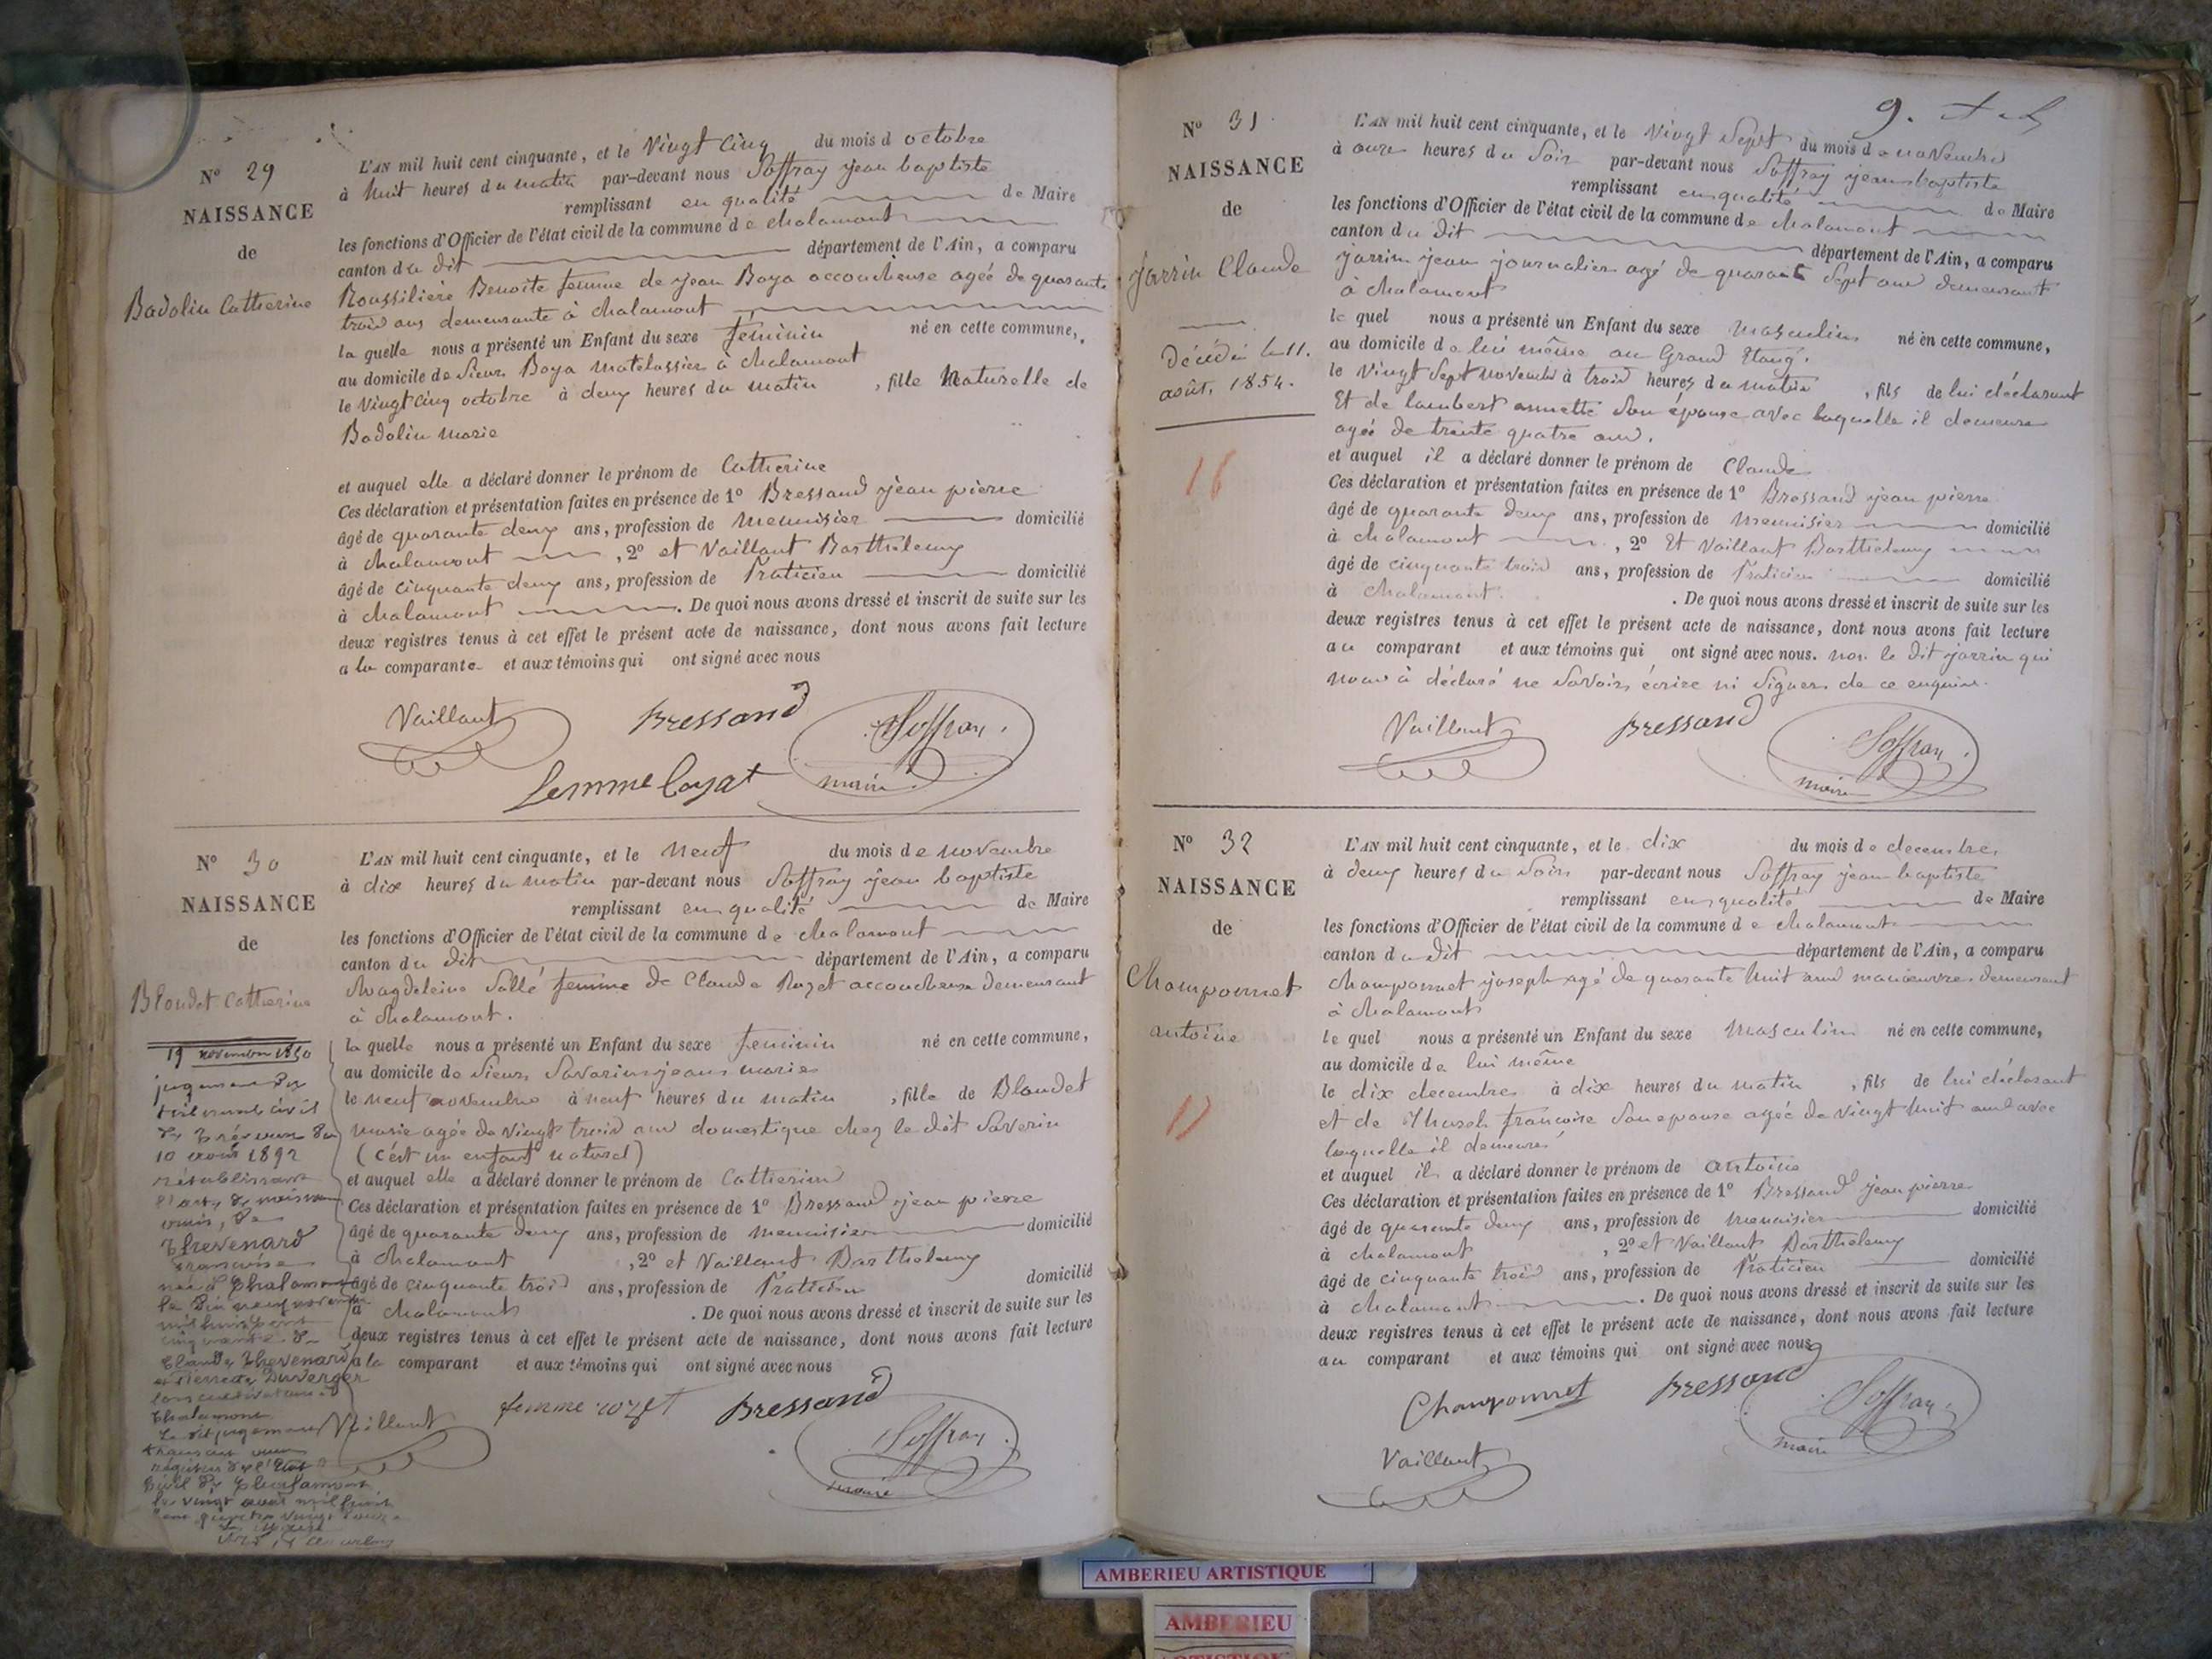 N° 29
NAISSANCE
de
Badolin Catherine
L'AN mil huit cent cinquante, et le Vingt Cinq du mois d octobre
à huit heures du matin par-devant nous Soffray jean baptiste
remplissant en qualité de Maire
les fonctions d'Officier de l'état civil de la commune de chalamont
canton du dit département de l'Ain, a comparu
Roussiliere Benoite femme de jean Boya accoucheuse agée de quarante
trois ans demeurante à chalamont
la quelle nous a présenté un Enfant du sexe féminin né en cette commune,
au domicile de sieur Boya matelassier à chalamont
le Vingt Cinq octobre à deux heures du matin, fille Naturelle de
Badolin Marie
et auquel elle a déclaré donner le prénom de Catherine
Ces déclaration et présentation faites en présence de 1° Bressand jean pierre
âgé de quarante deux ans, profession de menuisier domicilié
à chalamont, 2° et Vaillant Barthelemy
âgé de cinquante deux ans, profession de Praticien domicilié
à chalamont. De quoi nous avons dressé et inscrit de suite sur les
deux registres tenus à cet effet le présent acte de naissance, dont nous avons fait lecture
a la comparante et aux témoins qui ont signé avec nous
Vaillant Bressand Soffray
femme maire
N° 30
NAISSANCE
de
Bloudet Catherine
L'AN mil huit cent cinquante, et le neuf du mois de novembre
à dix heures du matin par-devant nous Soffray jean baptiste
remplissant en qualité de Maire
les fonctions d'Officier de l'état civil de la commune de chalamont
canton du dit département de l'Ain, a comparu
Magdeleine Sallé femme de Claude Rozet accoucheuse demeurant
à chalamont.
la quelle nous a présenté un Enfant du sexe feminin né en cette commune,
au domicile de sieur Savarin jean marie
le neuf novembre à neuf heures du matin, fille de Bloudet
marie agée de vingt trois ans domestique chez le dit Saverin
(c'est un enfant naturel)
et auquel elle a déclaré donner le prénom de Catherine
Ces déclaration et présentation faites en présence de 1° Bressand jean pierre
âgé de quarante deux ans, profession de menuisier domicilié
à chalamont, 2° et Vaillant Barthelemy
âgé de cinquante trois ans, profession de Praticien domicilié
à chalamont. De quoi nous avons dressé et inscrit de suite sur les
deux registres tenus à cet effet le présent acte de naissance, dont nous avons fait lecture
a la comparant et aux témoins qui ont signé avec nous
Vaillant femme rozet Bressand
Soffray
maire
19 novembre 1850
jugement du
tribunal civil
de Trévoux du
10 août 1892
rétablissant
l'acte de naissance
Thevenard
françoise
née à Chalamont
le dix neuf novembre
mil huit cent
cinquante de
Claude Thevenard
et Pierrette Duverger
Chalamont
le dit jugement
civil de Chalamont
le vingt août mil huit
cent quatre vingt douze
9.
N° 31
NAISSANCE
de
Jarrin Claude
Décédé le 11.
août. 1854.
16
L'AN mil huit cent cinquante, et le Vingt Sept du mois de novembre
à onze heures du Soir par-devant nous Soffray jean baptiste
remplissant en qualité de Maire
les fonctions d'Officier de l'état civil de la commune de chalamont
canton du dit département de l'Ain, a comparu
jarrin jean journalier agé de quarante Sept ans demeurant
à chalamont
le quel nous a présenté un Enfant du sexe masculin né en cette commune,
au domicile de lui même au Grand Etang.
le Vingt Sept novembre à trois heures du matin, fils de lui déclarant
Et de lambert annette Son épouse avec laquelle il demeure
agée de trente quatre ans.
et auquel il a déclaré donner le prénom de Claude
Ces déclaration et présentation faites en présence de 1° Bressand jean pierre
âgé de quarante deux ans, profession de menuisier domicilié
à chalamont, 2° Et Vaillant Barthelemy
âgé de cinquante trois ans, profession de Praticien domicilié
à chalamont. De quoi nous avons dressé et inscrit de suite sur les
deux registres tenus à cet effet le présent acte de naissance, dont nous avons fait lecture
au comparant et aux témoins qui ont signé avec nous. non le dit jarrin qui
nous à déclaré ne Savoir écrire ni Signer de ce enquis.
Vaillant Bressand Soffray
maire
N° 32
NAISSANCE
de
Champonnet
antoine
17
L'AN mil huit cent cinquante, et le dix du mois de decembre
à deux heures du Soir par-devant nous Soffray jean baptiste
remplissant en qualité de Maire
les fonctions d'Officier de l'état civil de la commune de chalamont
canton du dit département de l'Ain, a comparu
champonnet joseph agé de quarante huit ans manoeuvre demeurant
à chalamont
le quel nous a présenté un Enfant du sexe masculin né en cette commune,
au domicile de lui même
le dix decembre à dix heures du matin, fils de lui déclarant
et de françoise Son epouse agée de vingt huit ans avec
laquelle il demeure
et auquel il a déclaré donner le prénom de antoine
Ces déclaration et présentation faites en présence de 1° Bressand jean pierre
âgé de quarante deux ans, profession de menuisier domicilié
à chalamont, 2° et Vaillant Barthelemy
âgé de cinquante trois ans, profession de Praticien domicilié
à chalamont. De quoi nous avons dressé et inscrit de suite sur les
deux registres tenus à cet effet le présent acte de naissance, dont nous avons fait lecture
au comparant et aux témoins qui ont signé avec nous
Champonnet Bressand Soffray
maire
Vaillant
AMBERIEU ARTISTIQUE
AMBERIEU
ARTISTIQUE